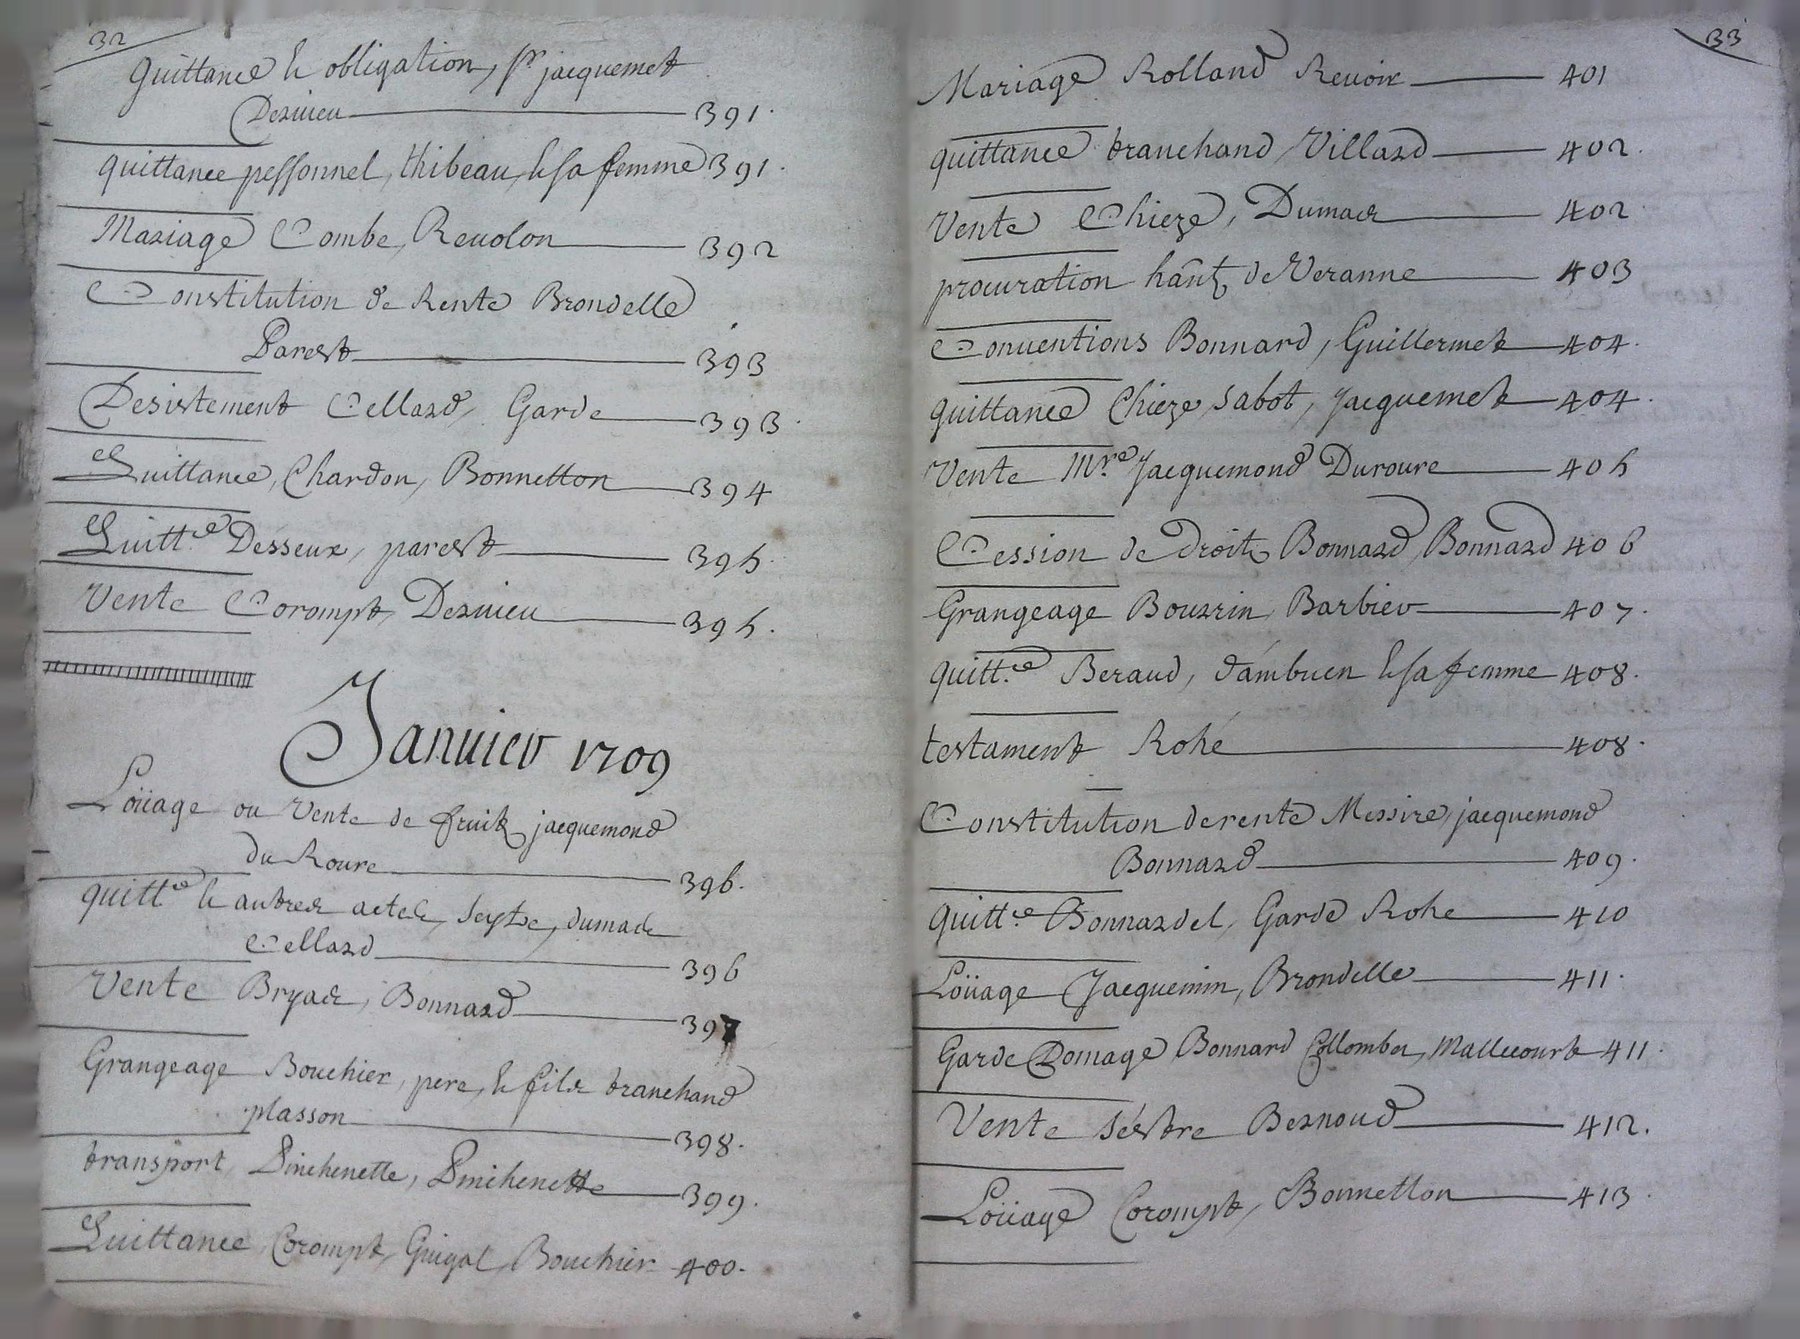 32
quittance & obligation, Sr jacquemet
Dervieu 391.
quittance pessonnel, thibeau, & sa femme 391.
Mariage Combe, Revolon 392
Constitution de Rente Brondelle
Paret 393
Desistement Cellard, Garde 393.
Quittance, Chardon, Bonnetton 394
Quitt.ce Desseux, paret 395
Vente Corompt, Dervieu 395.
Janvier 1709
Loüage ou Vente de fruits jacquemond
du Roure 396.
quitt.ce & autres actes, seytre, dumas
Cellard 396
Vente Bryas, Bonnard 397
Grangeage Bouchier, pere, & fils tranchand
plasson 398.
transport, Pinchenette, Pinchenette 399.
Quittance, Corompt, Guigal, Bouchier 400.
33
Mariage Rolland Revoir 401
quittance tranchand, Villard 402.
Vente Chieze, Dumas 402
procuration hau.t de Veranne 403
Conventions Bonnard, Guillermet 404.
quittance Chieze, sabot, jacquemet 404.
Vente M.re Jacquemond Duroure 405
Cession de droits Bonnard, Bonnard 406
Grangeage Bourrin, Barbier 407.
quitt.ce Beraud, d'ambuen & sa femme 408.
testament Rohé 408.
Constitution de rente Messire, jacquemond
Bonnard 409.
quitt.ce Bonnardel, Garde Rohe 410
Loüage Jacquemin, Brondelle 411.
Garde Domage Bonnard Collombet, Mallecourt 411.
Vente séstre Bernoud 412.
Loüage Corompt, Bonnetton 413.